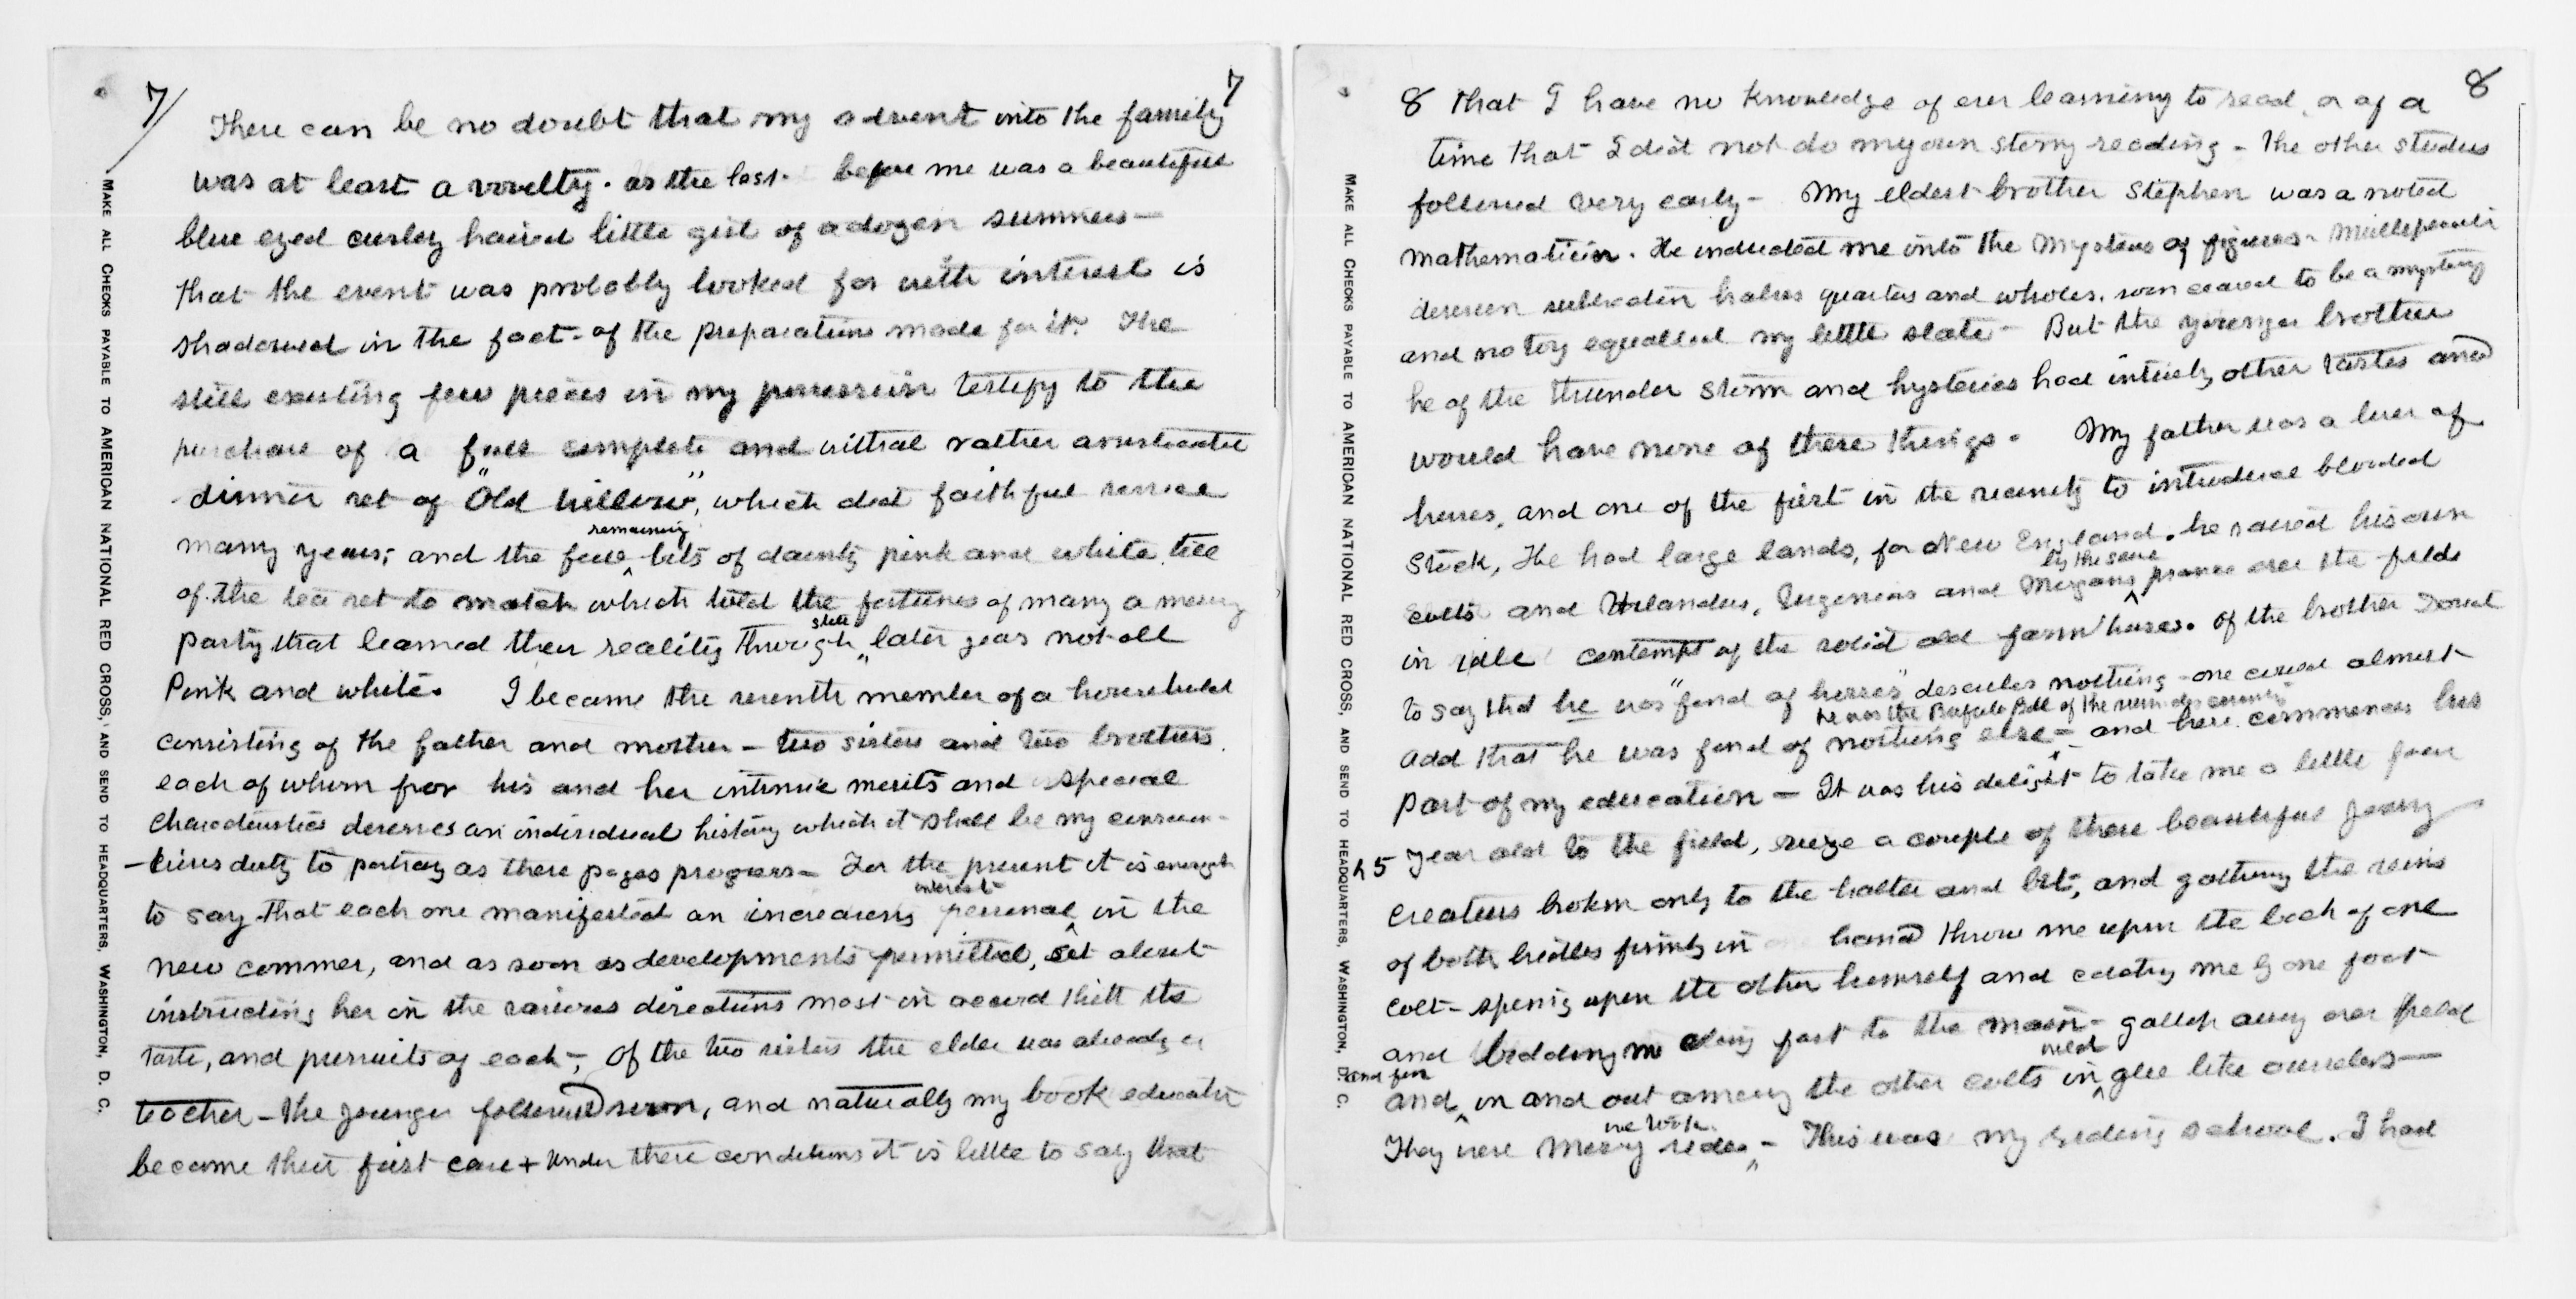 7/
7
There can be no doubt that my advent into the family
was at least a novelty. as the last before me was a beautiful
blue eyed curley haired little girl of a dozen summers—
that the event was probably looked for with interest is
shadowed in the fact of the preparations made for it. The
still existing few pieces in my possession testify to the
purchase of a full complete and withal rather aristocratic
dinner set of "Old Willow", which did faithful service
remaining
many years; and the few bits of dainty pink and white
of the tea set to match which told the fortunes of many a merry
still
party that learned their reality through later years not all
Pink and white. I became the seventh member of a household
consisting of the father and mother – two sisters and two brothers.
each of whom for his and her intrinsic merits and special
characteristics deserves an individual history which it shall be my conscien-
-tious duty to portray as these pages progress – For the present it is enough
interest
to say that each one manifested an increasing personal in the
new commer, and as soon as developments permitted, set about
instructing her in the various directions most in accord with the
taste, and pursuits of each –, Of the two sisters the elder was already a
teacher – the younger followed soon, and naturally my book education
became their first care + Under these conditions it is little to say that
MAKE ALL CHECKS PAYABLE TO AMERICAN NATIONAL RED CROSS, AND SEND TO HEADQUARTERS, WASHINGTON, D. C.
8
8 that I have no knowledge of ever learning to read, or of a
time that I did not do my own story reading – The other studies
followed very early – My eldest brother Stephen was a noted
mathematician. He inducted me into the Mystery of figures – Multiplication
division subtraction halves quarters and wholes. soon ceased to be a mystery
and no toy equalled my little slate – But the younger brother
he of the thunder storm and hysterics had intirely other tastes and
would have none of these things. My father was a lover of
horses, and one of the first in the vicinity to introduce blooded
Stock, He had large lands, for New England. he raised his own
by the side
colts and Hilanders, Virginias and Morgans pranced over the fields
in idle contempt of the solid old farm horses. Of the brother David
to say that he was "fond of horses" describes nothing – one could almost
he was the Buffalo Bill of the surrounding country
add that he was fond of nothing else – and here commences his
part of my education – It was his delight to take me a little four
5 year old to the field, seize a couple of those beautiful young
creatures broken only to the halter and bit, and gathering the reins
of both bridles firmly in hand throw me upon the back of one
colt – spring upon the other himself and catching me by one foot
and bidding me cling fast to the main – gallop away over field
and fen wild
and in and out among the other colts in glee like ourselves—
we took
They were Merry rides, – This was my riding school. I had
MAKE ALL CHECKS PAYABLE TO AMERICAN NATIONAL RED CROSS, AND SEND TO HEADQUARTERS, WASHINGTON, D. C.